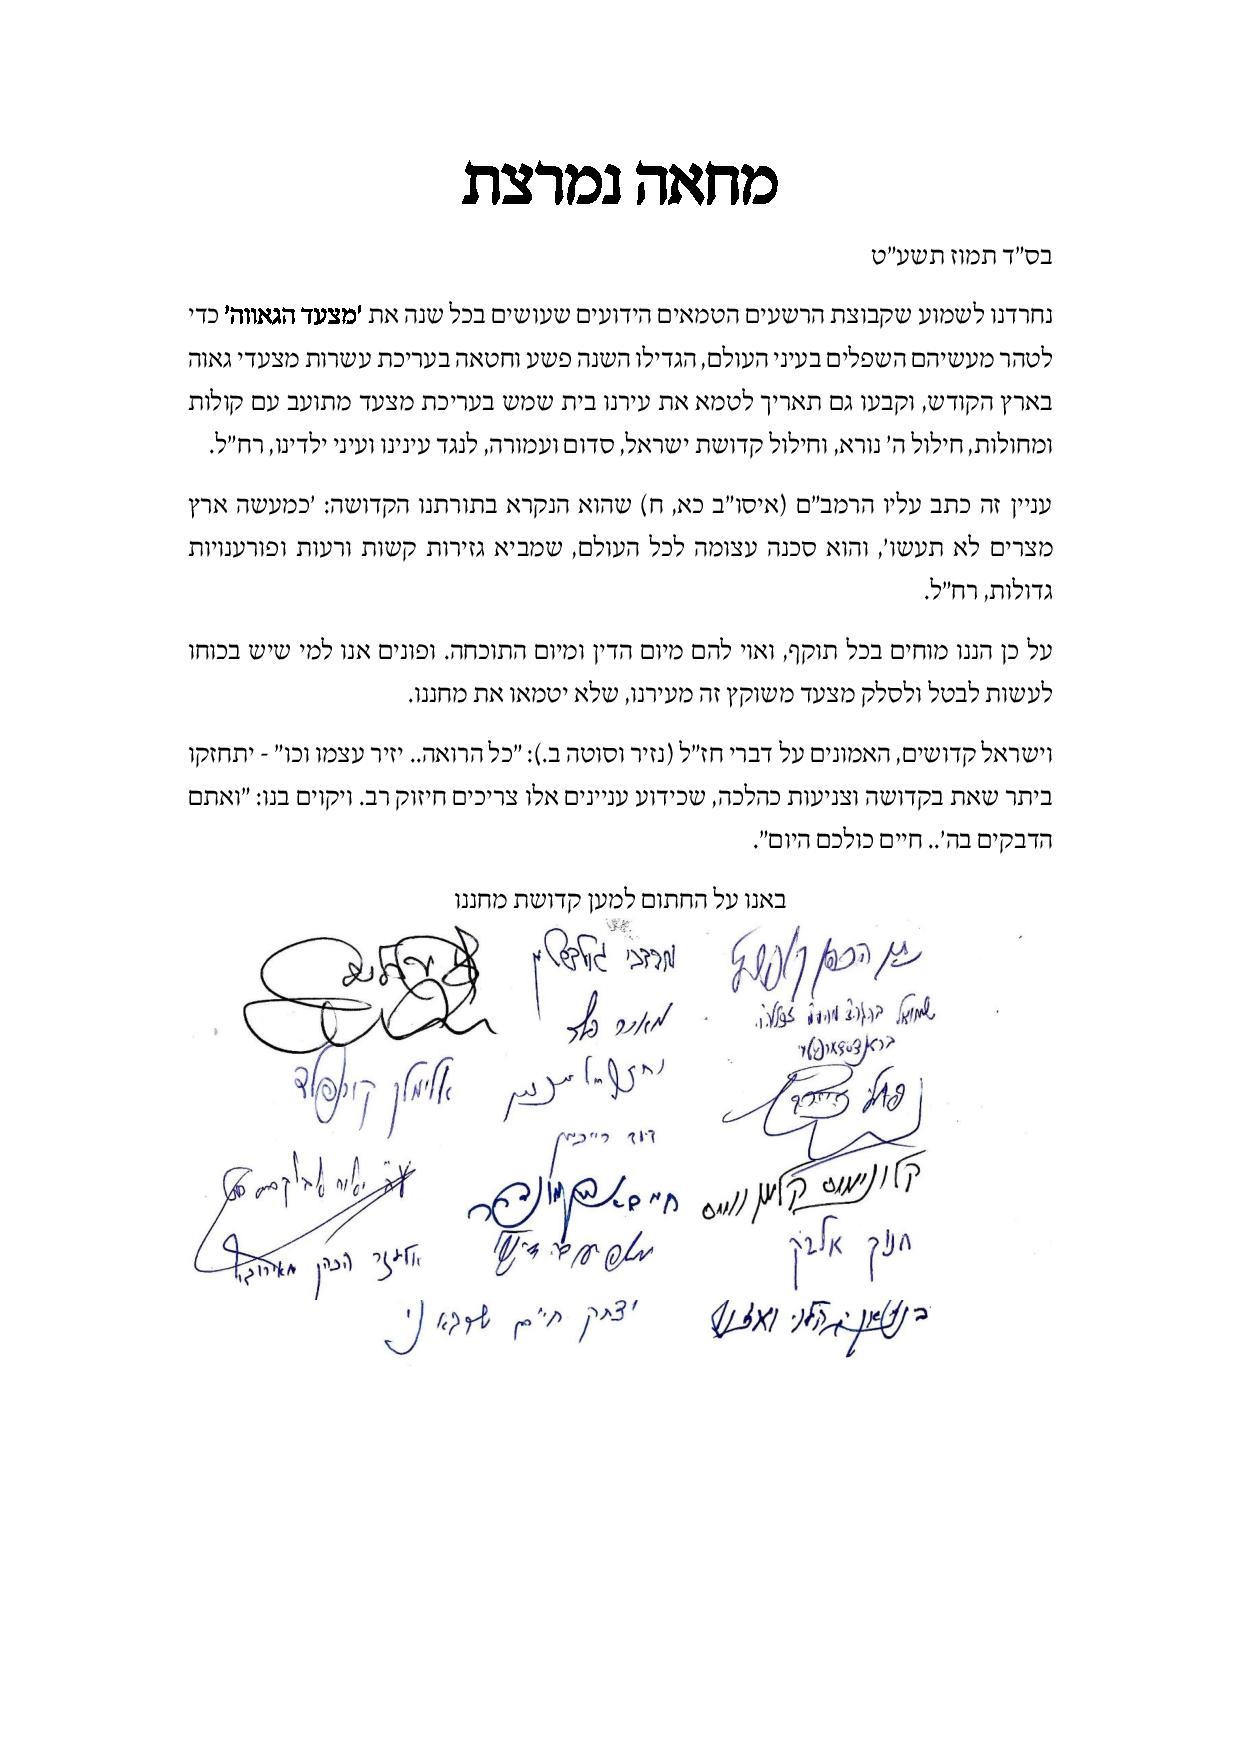 מחאה נמרצת
בס"ד תמוז תשע"ט
נחרדנו לשמוע שקבוצת הרשעים הטמאים הידועים שעושים בכל שנה את 'מצעד הגאווה' כדי
לטהר מעשיהם השפלים בעיני העולם, הגדילו השנה פשע וחטאה בעריכת עשרות מצעדי גאוה
בארץ הקודש, וקבעו גם תאריך לטמא את עירנו בית שמש בעריכת מצעד מתועב עם קולות
ומחולות, חילול ה' נורא, וחילול קדושת ישראל, סדום ועמורה, לנגד עינינו ועיני ילדינו, רח"ל.
עניין זה כתב עליו הרמב"ם (איסו"ב כא, ח) שהוא הנקרא בתורתנו הקדושה: 'כמעשה ארץ
מצרים לא תעשו', והוא סכנה עצומה לכל העולם, שמביא גזירות קשות ורעות ופורענויות
גדולות, רח"ל.
על כן הננו מוחים בכל תוקף, ואוי להם מיום הדין ומיום התוכחה. ופונים אנו למי שיש בכוחו
לעשות לבטל ולסלק מצעד משוקץ זה מעירנו, שלא יטמאו את מחננו.
וישראל קדושים, האמונים על דברי חז"ל (נזיר וסוטה ב.): "כל הרואה.. יזיר עצמו וכו" - יתחזקו
ביתר שאת בקדושה וצניעות כהלכה, שכידוע עניינים אלו צריכים חיזוק רב. ויקוים בנו: "ואתם
הדבקים בה'.. חיים כולכם היום".
באנו על החתום למען קדושת מחננו
נתן הכהן קופשיץ
מרדכי גולדשטיין
שמואל
אלימלך קורנפלד
יחזקאל
דוד
קלונימוס קליינווקס
חנוך אלבק
אליעזר הכהן
יצחק חיים